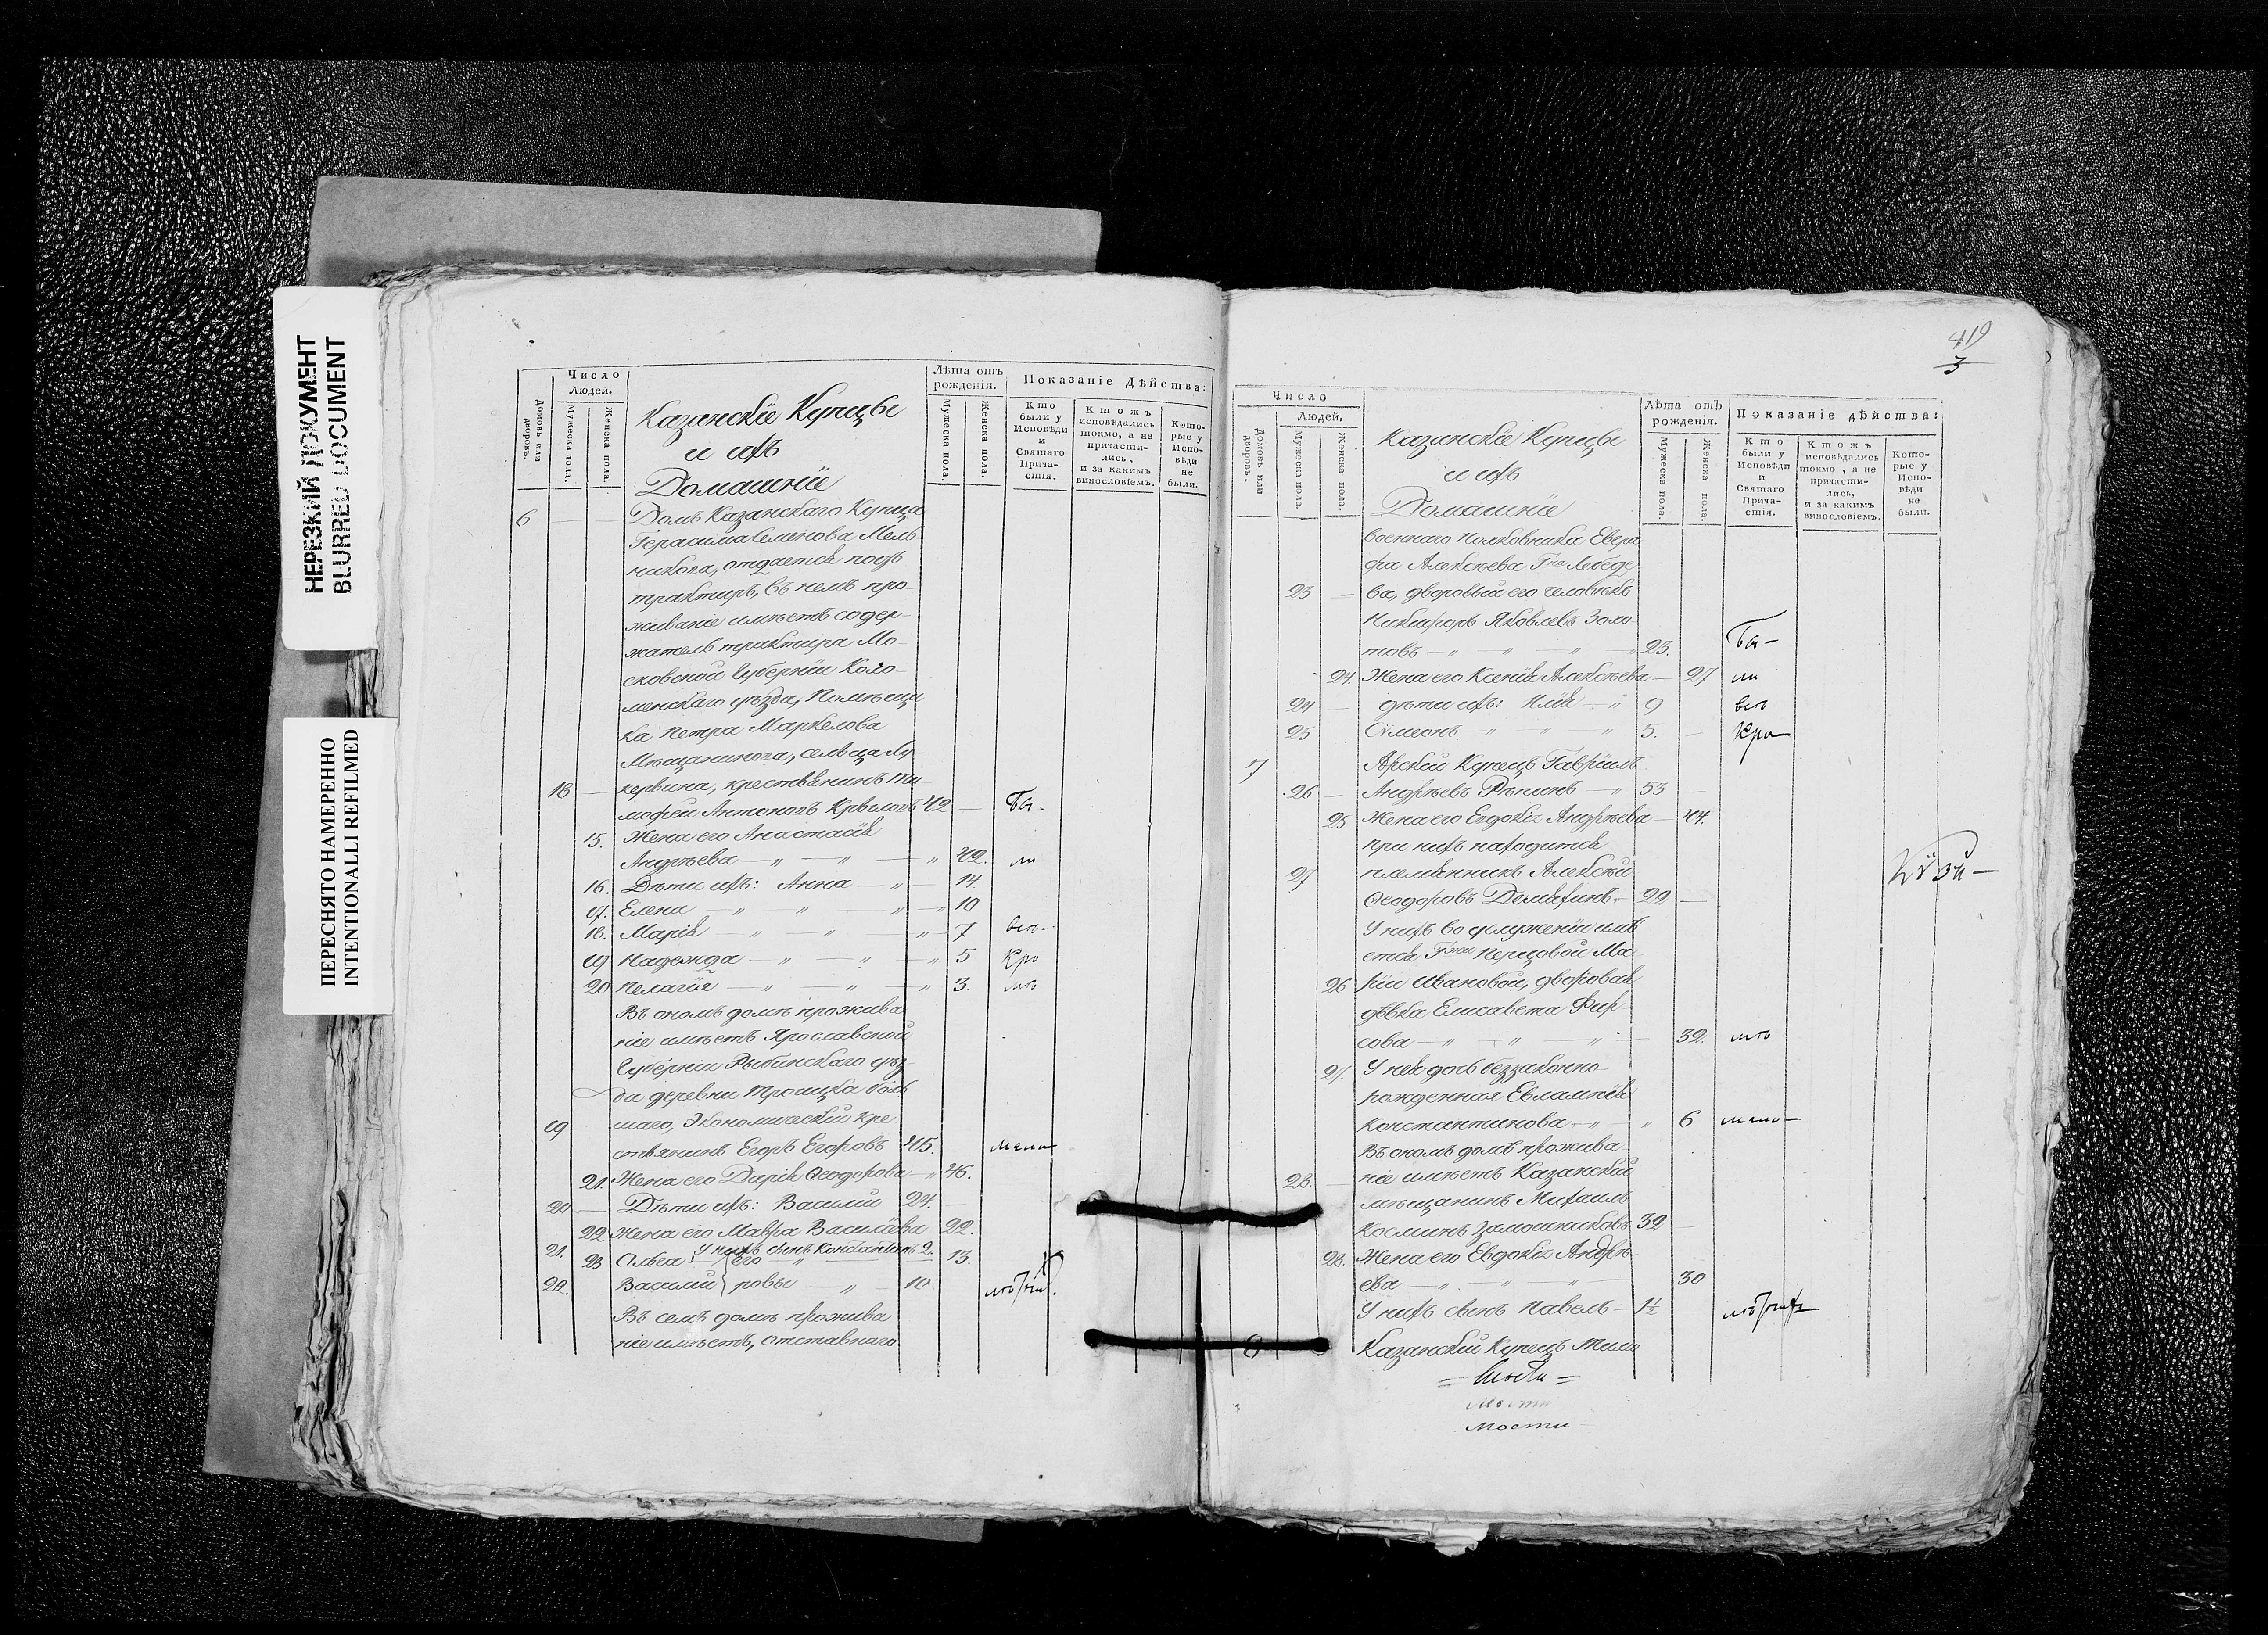 НЕРЕЗКИЙ ДОКУМЕНТ
BLURRED DOCUMENT
ПЕРЕСНЯТО НАМЕРЕННО
INTENTIONALLI REFILMED
Число
Людей.
Домовъ или дворовъ.
Мужеска пола.
Женска пола.
Казанскіе Купцы
и ихъ
Домашніе
Лѣта отъ рожденія.
Мужеска пола.
Женска пола.
Показаніе Дѣйства:
Кто были у Исповѣди и Святаго Прича-стія.
Ктожъ исповѣдались токмо, а не причасти-лись, и за какимъ винословіемъ.
Кото-рые у Испо-вѣди не были.
6 — — Домъ Казанскаго Купца
Герасима Семенова Мель
никова, отдается подъ
трактиръ, въ немъ про-
живаніе имѣетъ содер-
жатель трактира Мо-
сковской Губерніи Коло-
менскаго уѣзда, Помѣщи
ка Петра Маркелова
Мѣщанинова, сельца Лу-
18 — кервина, крестьянинъ Ти
мофей Антоновъ Крыловъ 42 — Бы-
15. Жена его Анастасія
Андреева — „ — „ — „ 42. ли
16. Дѣти ихъ: Анна — „ — 14.
17. Елена — „ — „ — „ 10
18. Марія — „ — „ — „ 7 всѣ-
19 Надежда — „ — „ — „ 5 Кро
20 Пелагія — „ — „ — „ 3. мѣ
Въ ономъ домѣ прожива
ніе имѣетъ Ярославской
Губерніи Рыбинскаго уѣз-
да деревни Троицка боль
19 шаго, Экономическій кре
стьянинъ Егоръ Егоровъ 45. мало
21. Жена его Дарія Ѳеодорова — „ 46.
20 — Дѣти ихъ: Василій 24. —
22 Жена его Мавра Василіева 22.
21. У нихъ сынъ Константинъ 2.
23 Ольга } Его „ — 13.
22. Василій } ровы — „ — 10
Въ семъ домѣ прожива
ніе имѣетъ, отставнаго
419
3
Число
Людей.
Домовъ или дворовъ.
Мужеска пола.
Женска пола.
Казанскіе Купцы
и ихъ
Домашніе
Лѣта отъ рожденія.
Мужеска пола.
Женска пола.
Показаніе дѣйства:
Кто были у Исповѣди и Святаго Прича-стія.
Ктожъ исповѣдались токмо, а не причасти-лись, и за какимъ винословіемъ.
Кото-рые у Испо-вѣди не были.
военнаго Полковника Евгра
фа Алексѣева Гна Лебеде
23 — ва, дворовый его человѣкъ
Никифоръ Яковлевъ Золо
товъ — „ — „ — „ — „ 23. Бы-
24. Жена его Ксенія Алексѣева — 27 ли
24 — дѣти ихъ: Илія — „ 9 всѣ
25 Сѵмеонъ — „ — „ — „ 5. — Кро
7 Арскій Купецъ Гавріилъ
26 — Андреевъ Рѣпинъ — „ 53 —
25 Жена его Евдокія Андреева — 44.
при нихъ находится
27 племянникъ Алексѣй
Ѳеодоровъ — 22 —
У нихъ во услуженіи имѣ
ется Гжи Перцовой Ма-
26 ріи Ивановой, дворовая
дѣвка Елисавета Фир-
сова — „ — „ — „ — 32. мѣ
27. У нея дочь беззаконно-
рожденная Евлампія
Константинова — „ — „ 6 мало-
Въ ономъ домѣ прожива
28. — ніе имѣетъ Казанскій
мѣщанинъ Михаилъ
Косминъ Замошниковъ 32 —
28. Жена его Евдокія Андрѣ-
ева — „ — „ — „ — 30
У нихъ сынъ Павелъ — 1½
8 Казанскій Купецъ Тимо
Мости
Мости